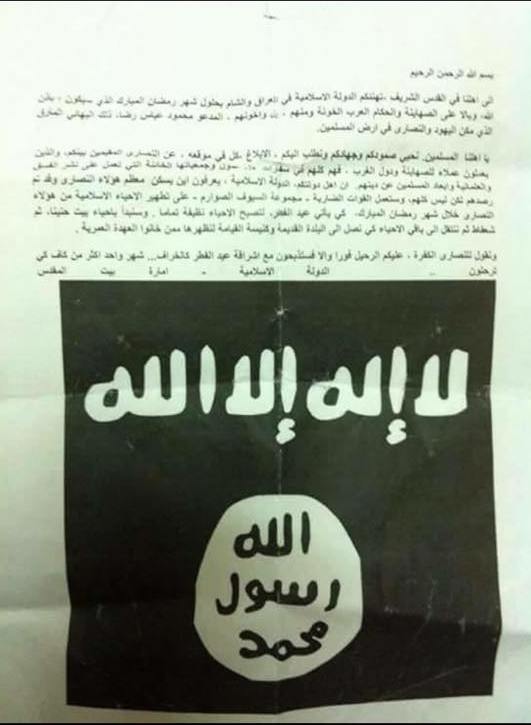 بسم الله الرحمن الرحيم
الى اهلنا في القدس الشريف ،تهنئكم الدولة الاسلامية في العراق والشام بحلول شهر رمضان المبارك الذي سيكون ، باذن
الله، وبالا على الصهاينة والحكام العرب الخونة ومنهم ، بل واخونهم ، المدعو محمود عباس رضا، ذلك البهائي المارق
الذي مكن اليهود والنصارى في ارض المسلمين.
يا اهلنا المسلمين. نحيي صمودكم وجهادكم ونطلب اليكم ، الابلاغ ،كل في موقعه ، عن النصارى المقيمين بينكم، والذين
يعملون عملاء للصهاينة ودول الغرب ، فهم كلهم في وجمعياتها الخائنة التي تعمل على نشر الفسق
والعلمانية وابعاد المسلمين عن دينهم. ان اهل دولتكم، الدولة الاسلامية ، يعرفون اين يسكن معظم هؤلاء النصارى وقد تم
رصدهم لكن ليس كلهم، وستعمل القوات الضاربة - مجموعة السيوف الصوارم - على تطهير الاحياء الاسلامية من هؤلاء
النصارى خلال شهر رمضان المبارك، كي يأتي عيد الفطر، لتصبح الاحياء نظيفة تماما . وسنبدأ باحياء بيت حنينا، ثم
شعفاط ثم ننتقل الى باقي الاحياء كي نصل الى البلدة القديمة وكنيسة القيامة لنطهرها ممن خانوا العهدة العمرية .
ونقول للنصارى الكفرة ، عليكم الرحيل فورا والا فستذبحون مع اشراقة عيد الفطر كالخراف... شهر واحد اكثر من كاف كي
ترحلون .. الدولة الاسلامية - امارة بيت المقدس
لا إله إلا الله
الله
رسول
محمد